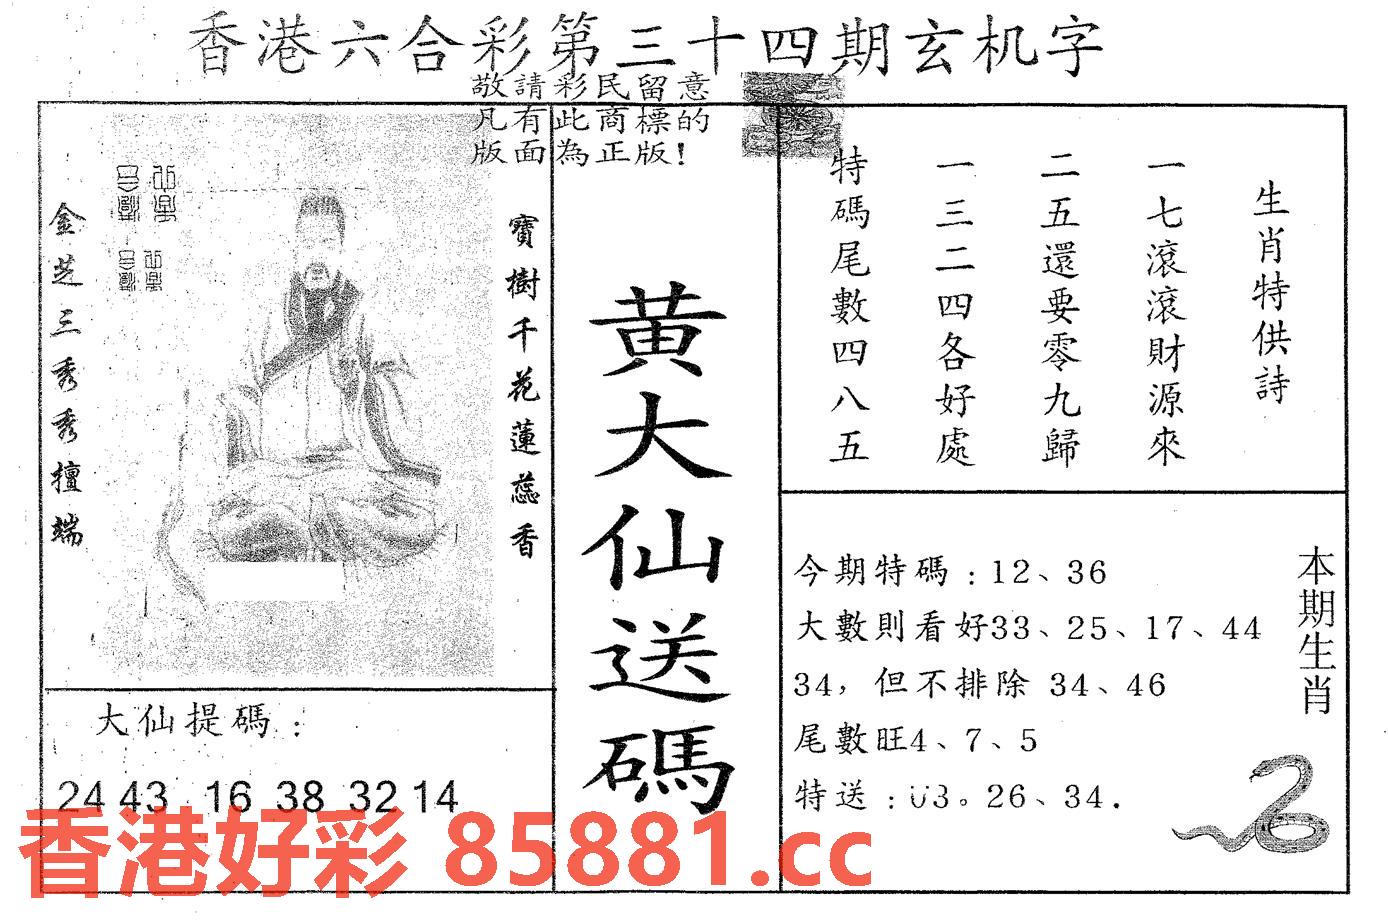 香港六合彩第三十四期玄机字
敬請彩民留意
凡有此商標的
版面為正版!
金芝三秀秀擅端
寶樹千花蓮蕊香
黃大仙送碼
生肖特供詩
一七滾滾財源來
二五還要零九歸
一三二四各好處
特碼尾數四八五
今期特碼:12、36
大數則看好33、25、17、44
34,但不排除 34、46
尾數旺4、7、5
特送:03。26、34.
本期生肖
大仙提碼:
24 43 16 38 32 14
香港好彩 85881.cc